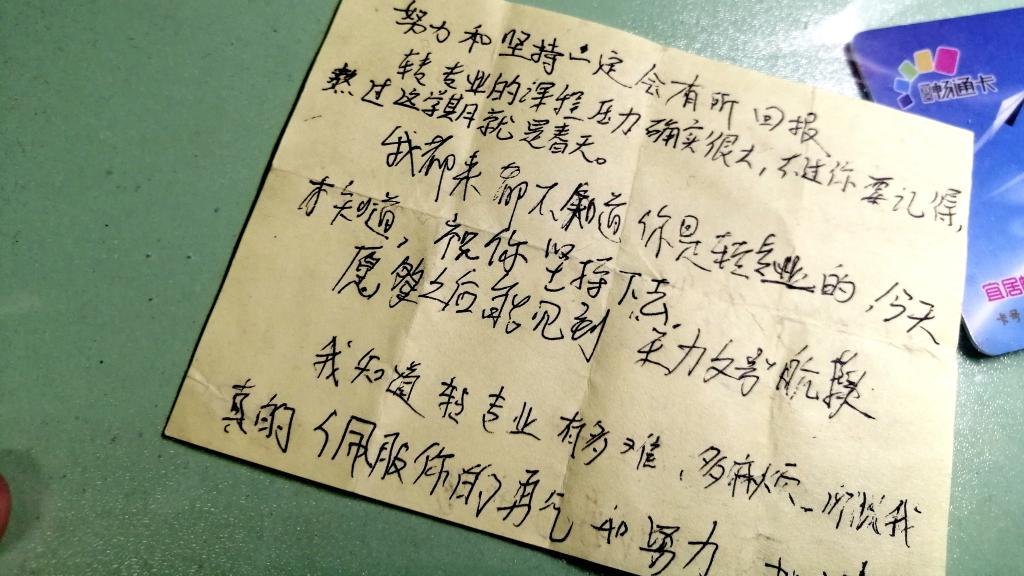 努力和坚持一定会有所回报
转专业的课程压力确实很大,但你要记得,
熬过这学期就是春天。
我都来都不知道你是转专业的,今天
才知道,祝你坚持下去
愿你之后能见到
我知道转专业有多难、多麻烦、所以我
真的佩服你的勇气和努力
畅通卡
宜居
卡号